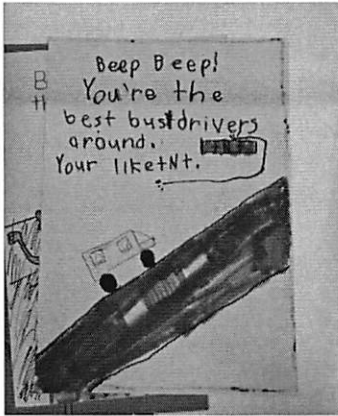 Beep Beep!
You're the
best bust drivers
around.
Your like tNt.
B